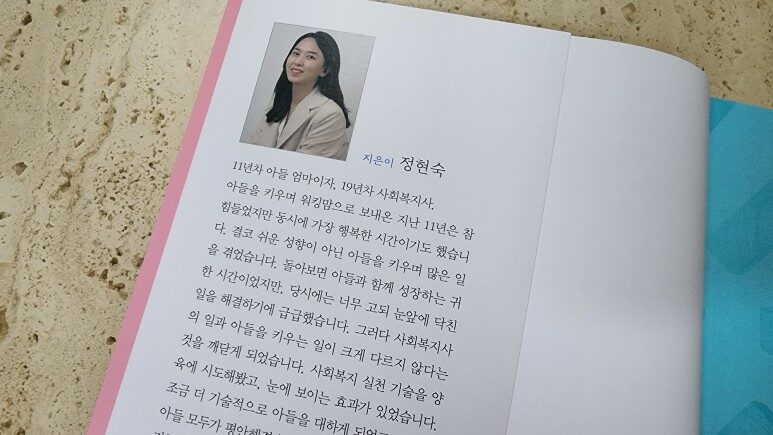 지은이 정현숙
11년차 아들 엄마이자, 19년차 사회복지사.
아들을 키우며 워킹맘으로 보내온 지난 11년은 참
힘들었지만 동시에 가장 행복한 시간이기도 했습니
다. 결코 쉬운 성향이 아닌 아들을 키우며 많은 일
을 겪었습니다. 돌아보면 아들과 함께 성장하는 귀
한 시간이었지만, 당시에는 너무 고되 눈앞에 닥친
일을 해결하기에 급급했습니다. 그러다 사회복지사
의 일과 아들을 키우는 일이 크게 다르지 않다는
것을 깨닫게 되었습니다. 사회복지 실천 기술을 양
육에 시도해봤고, 눈에 보이는 효과가 있었습니다.
조금 더 기술적으로 아들을 대하게 되었고
아들 모두가